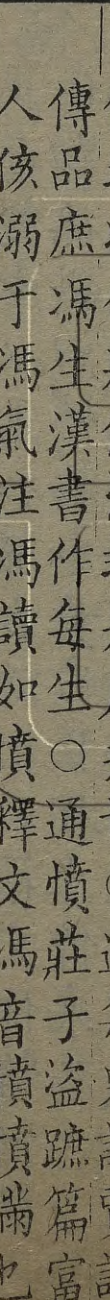 傳品庶馮生漢書作每生○通憤莊子盜蹠篇富
人侅溺于馮氣注馮讀如憤釋文馮音憤憤懣也